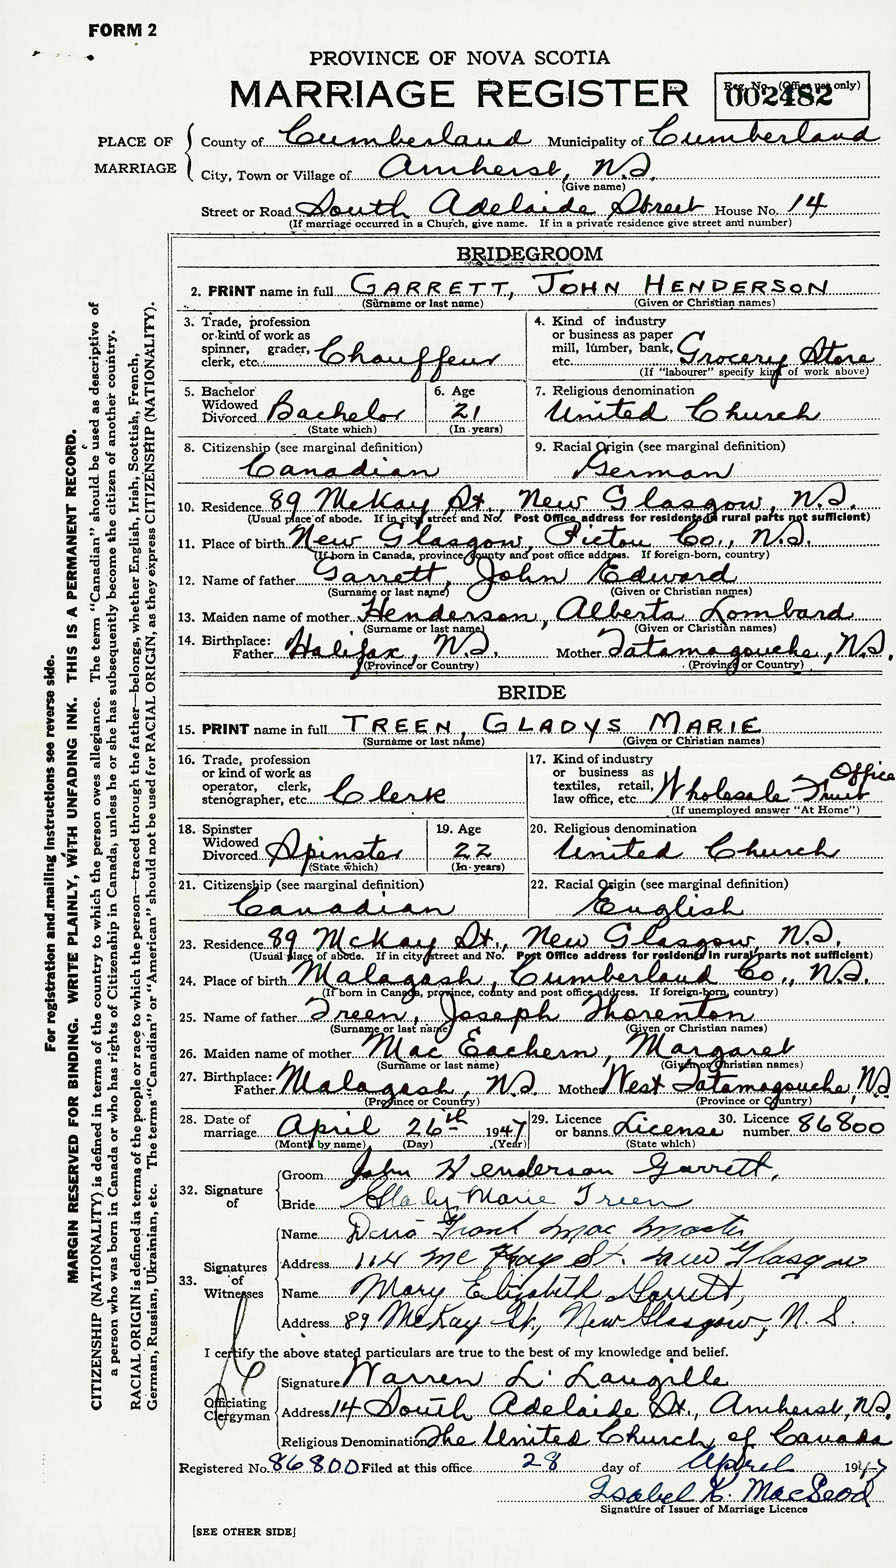 FORM 2
PROVINCE OF NOVA SCOTIA
MARRIAGE REGISTER
Reg. No. (Office use only)
002482
PLACE OF MARRIAGE
County of Cumberland Municipality of Cumberland
City, Town or Village of Amherst, N.S.
(Give name)
Street or Road South Adelaide Street House No. 14
(If marriage occurred in a Church, give name. If in a private residence give street and number)
BRIDEGROOM
2. PRINT name in full GARRETT, JOHN HENDERSON
(Surname or last name) (Given or Christian names)
3. Trade, profession or kind of work as spinner, grader, clerk, etc. Chauffeur
4. Kind of industry or business as paper mill, lumber, bank, etc. Grocery Store
(If "labourer" specify kind of work above)
5. Bachelor Widowed Divorced Bachelor
(State which)
6. Age 21
(In years)
7. Religious denomination United Church
8. Citizenship (see marginal definition) Canadian
9. Racial Origin (see marginal definition) German
10. Residence 89 McKay St., New Glasgow, N.S.
(Usual place of abode. If in city street and No. Post Office address for residents in rural parts not sufficient)
11. Place of birth New Glasgow, Pictou Co., N.S.
(If born in Canada, province, county and post office address. If foreign-born, country)
12. Name of father Garrett, John Edward
(Surname or last name) (Given or Christian names)
13. Maiden name of mother Henderson, Alberta Lombard
(Surname or last name) (Given or Christian names)
14. Birthplace: Father Halifax, N.S. Mother Tatamagouche, N.S.
(Province or Country) (Province or Country)
BRIDE
15. PRINT name in full TREEN, GLADYS MARIE
(Surname or last name) (Given or Christian names)
16. Trade, profession or kind of work as operator, clerk, stenographer, etc. Clerk
17. Kind of industry or business as textiles, retail, law office, etc. Wholesale Fruit Office
(If unemployed answer "At Home")
18. Spinster Widowed Divorced Spinster
(State which)
19. Age 22
(In years)
20. Religious denomination United Church
21. Citizenship (see marginal definition) Canadian
22. Racial Origin (see marginal definition) English
23. Residence 89 McKay St., New Glasgow, N.S.
(Usual place of abode. If in city street and No. Post Office address for residents in rural parts not sufficient)
24. Place of birth Malagash, Cumberland Co., N.S.
(If born in Canada, province, county and post office address. If foreign-born, country)
25. Name of father Treen, Joseph Thorenton
(Surname or last name) (Given or Christian names)
26. Maiden name of mother MacEachern, Margaret
(Surname or last name) (Given or Christian names)
27. Birthplace: Father Malagash, N.S. Mother West Tatamagouche, N.S.
(Province or Country) (Province or Country)
28. Date of marriage April 26th 1947
(Month by name) (Day) (Year)
29. Licence or banns License
(State which)
30. Licence number 86800
32. Signature of
Groom John Henderson Garrett,
Bride Gladys Marie Treen
33. Signatures of Witnesses
Name Frank Mac Master
Address 114 McKay St. New Glasgow
Name Mary Elizabeth Garrett,
Address 89 McKay St., New Glasgow, N.S.
I certify the above stated particulars are true to the best of my knowledge and belief.
Officiating Clergyman
Signature Warren L. Langille
Address 14 South Adelaide St., Amherst, N.S.
Religious Denomination The United Church of Canada
Registered No. 86800 Filed at this office 28 day of April 1947
Isabel K. MacLeod
Signature of Issuer of Marriage Licence
[SEE OTHER SIDE]
For registration and mailing instructions see reverse side.
MARGIN RESERVED FOR BINDING. WRITE PLAINLY, WITH UNFADING INK. THIS IS A PERMANENT RECORD.
CITIZENSHIP (NATIONALITY) is defined in terms of the country to which the person owes allegiance. The term "Canadian" should be used as descriptive of
a person who was born in Canada or who has rights of Citizenship in Canada, unless he or she has subsequently become the citizen of another country.
RACIAL ORIGIN is defined in terms of the people or race to which the person—traced through the father—belongs, whether English, Irish, Scottish, French,
German, Russian, Ukrainian, etc. The terms "Canadian" or "American" should not be used for RACIAL ORIGIN, as they express CITIZENSHIP (NATIONALITY).